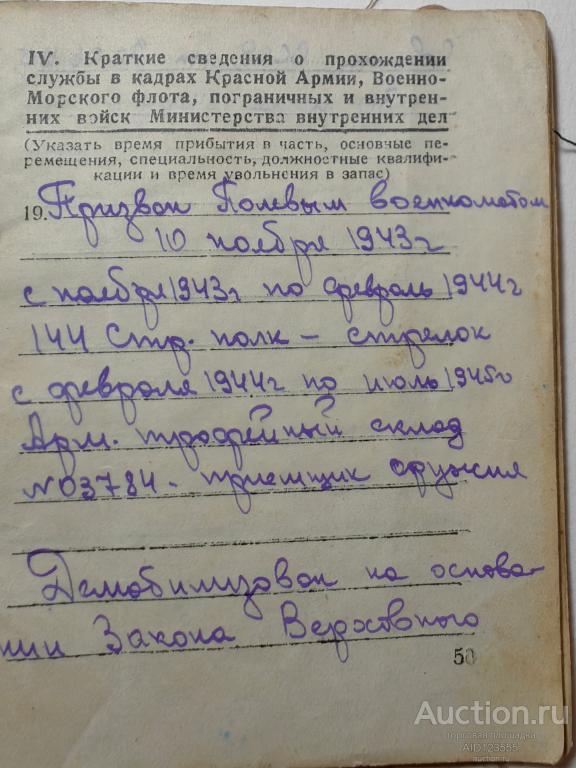 IV. Краткие сведения о прохождении
службы в кадрах Красной Армии, Военно-
Морского флота, пограничных и внутрен-
них войск Министерства внутренних дел
(Указать время прибытия в часть, основные пе-
ремещения, специальность, должностные квалифи-
кации и время увольнения в запас)
19. Призван Полевым военкоматом
10 ноября 1943г
с ноября 1943г по февраль 1944г
144 Стр. полк – стрелок
с февраля 1944г по июль 1945г
Арм. трофейный склад
№ 03784 - приемщик оружия
Демобилизован на основа-
нии Закона Верховного
50
Auction.ru
торговая площадка
AID123555
auction.ru